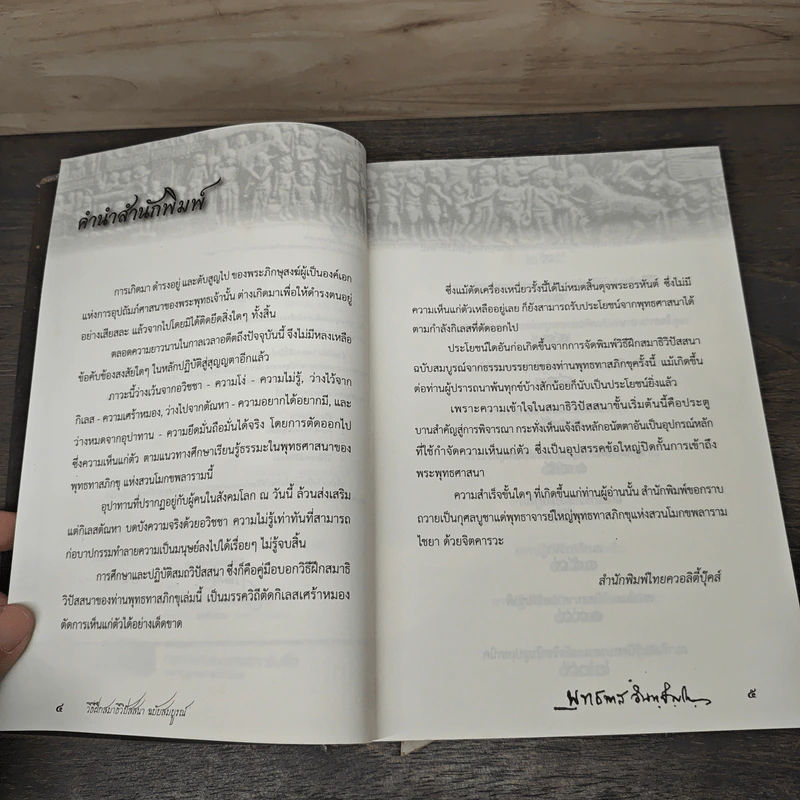 คำนำสำนักพิมพ์
การเกิดมา ดำรงอยู่ และดับสูญไป ของพระภิกษุสงฆ์ผู้เป็นองค์เอก
แห่งการอุปถัมภ์ศาสนาของพระพุทธเจ้านั้น ต่างเกิดมาเพื่อให้ดำรงตนอยู่
อย่างเสียสละ แล้วจากไปโดยมิได้ติดยึดสิ่งใดๆ ทั้งสิ้น
ตลอดความยาวนานในกาลเวลาอดีตถึงปัจจุบันนี้ จึงไม่มีหลงเหลือ
ข้อคับข้องสงสัยใดๆ ในหลักปฏิบัติสู่สูญญตาอีกแล้ว
ภาวะนี้ว่างเว้นจากอวิชชา - ความโง่ - ความไม่รู้, ว่างไว้จาก
กิเลส - ความเศร้าหมอง, ว่างไปจากตัณหา - ความอยากได้อยากมี, และ
ว่างหมดจากอุปาทาน - ความยึดมั่นถือมั่นได้จริง โดยการตัดออกไป
ซึ่งความเห็นแก่ตัว ตามแนวทางศึกษาเรียนรู้ธรรมะในพุทธศาสนาของ
พุทธทาสภิกขุ แห่งสวนโมกขพลารามนี้
อุปาทานที่ปรากฏอยู่กับผู้คนในสังคมโลก ณ วันนี้ ล้วนส่งเสริม
แต่กิเลสตัณหา บดบังความจริงด้วยอวิชชา ความไม่รู้เท่าทันที่สามารถ
ก่อบาปกรรมทำลายความเป็นมนุษย์ลงไปได้เรื่อยๆ ไม่รู้จบสิ้น
การศึกษาและปฏิบัติสมถวิปัสสนา ซึ่งก็คือคู่มือบอกวิธีฝึกสมาธิ
วิปัสสนาของท่านพุทธทาสภิกขุเล่มนี้ เป็นมรรควิถีตัดกิเลสเศร้าหมอง
ตัดการเห็นแก่ตัวได้อย่างเด็ดขาด
๔ วิธีฝึกสมาธิวิปัสสนา ฉบับสมบูรณ์
ซึ่งแม้ตัดเครื่องเหนี่ยวรั้งนี้ได้ไม่หมดสิ้นดุจพระอรหันต์ ซึ่งไม่มี
ความเห็นแก่ตัวเหลืออยู่เลย ก็ยังสามารถรับประโยชน์จากพุทธศาสนาได้
ตามกำลังกิเลสที่ตัดออกไป
ประโยชน์ใดอันก่อเกิดขึ้นจากการจัดพิมพ์วิธีฝึกสมาธิวิปัสสนา
ฉบับสมบูรณ์จากธรรมบรรยายของท่านพุทธทาสภิกขุครั้งนี้ แม้เกิดขึ้น
ต่อท่านผู้ปรารถนาพ้นทุกข์บ้างสักน้อยก็นับเป็นประโยชน์ยิ่งแล้ว
เพราะความเข้าใจในสมาธิวิปัสสนาขั้นเริ่มต้นนี้คือประตู
บานสำคัญสู่การพิจารณา กระทั่งเห็นแจ้งถึงหลักอนัตตาอันเป็นอุปกรณ์หลัก
ที่ใช้กำจัดความเห็นแก่ตัว ซึ่งเป็นอุปสรรคข้อใหญ่ปิดกั้นการเข้าถึง
พระพุทธศาสนา
ความสำเร็จขั้นใดๆ ที่เกิดขึ้นแก่ท่านผู้อ่านนั้น สำนักพิมพ์ขอกราบ
ถวายเป็นกุศลบูชาแด่พุทธาจารย์ใหญ่พุทธทาสภิกขุแห่งสวนโมกขพลาราม
ไชยา ด้วยจิตคารวะ
สำนักพิมพ์ไทยควอลิตี้บุ๊คส์
พุทธทาส อินทปัญโญ ๕